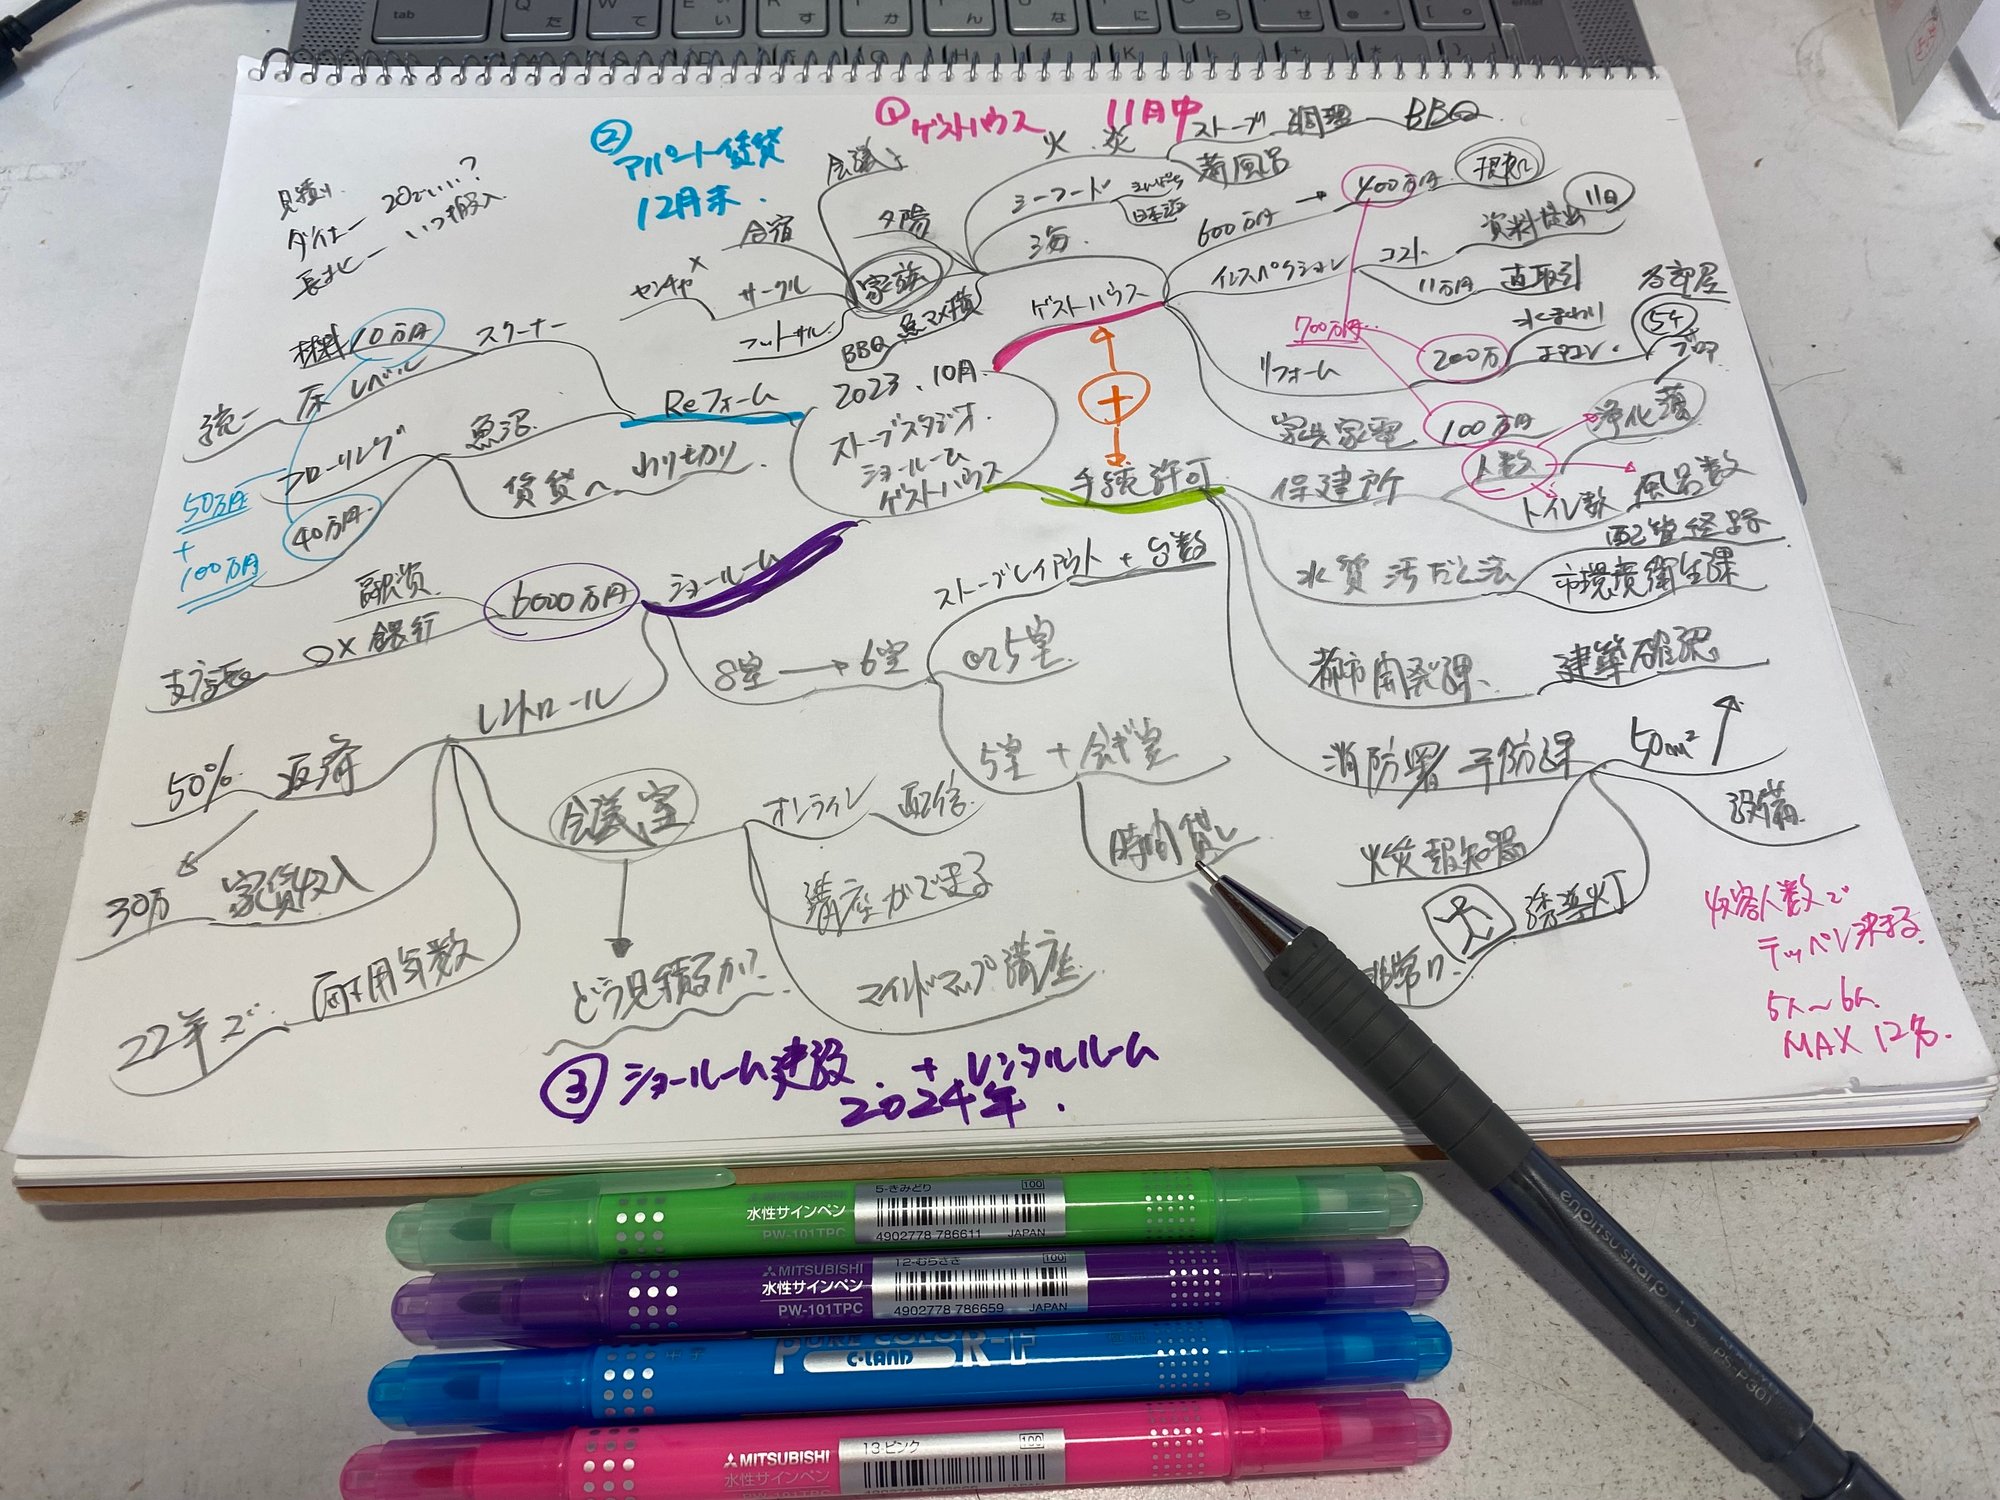 tab
Q
た
W
て
E
い
R
す
T
か
ん
な
に
ら
せ
enter
① ゲストハウス 11月中
② アパート賃貸
12月末
見積り
ダイナー 20でいい?
長北 ー いつ搬入
会議
合宿
サークル
フットサル
夕陽
家族
BBQ
火 炎
ストーブ 調理 BBQ
薪風呂
シーフード
日本酒
海
ゲストハウス
600万円 → 400万円
インスペクション
コスト
11万円
資料提出
11日
直取引
700万円
リフォーム
200万
水まわり
エアコン
各部屋
5ケ
家具家電
100万円
手続許可
保健所
人数
浄化槽
風呂数
トイレ数
水質汚だく法
配管経路
市環境衛生課
都市開発課
建築確認
消防署 予防課
50cm²
設備
火災報知器
誘導灯
非常口
収容人数で
テッペン決まる
5人〜6人
MAX 12名.
2023.10月
ストーブスタジオ
ショールーム
ゲストハウス
Reフォーム
スクーナー
材料 10万円
床 レベル
統一
魚沼
フローリング
40万円
50万円
+
100万円
賃貸へ わり切り
ショールーム
6000万円
融資
銀行
支店長
8室 → 6室
ストーブレイアウト + 台数
or 5室
5室 + 会ギ室
時間貸し
レントロール
50% 返済
30万 家賃収入
22年で 耐用年数
会議室
どう見積るか?
オンライン 配信
講座ができる
マインドマップ講座
③ ショールーム建設 + レンタルルーム
2024年.
5-きみどり
100
水性サインペン
PW-101TPC
4902778 786611 JAPAN
12-むらさき
100
MITSUBISHI
水性サインペン
PW-101TPC
4902778 786659 JAPAN
PURE COLOR-F
C·LAND
13-ピンク
100
MITSUBISHI
水性サインペン
PW-101TPC
JAPAN
enpitsu sharp 1.3
PS-P301